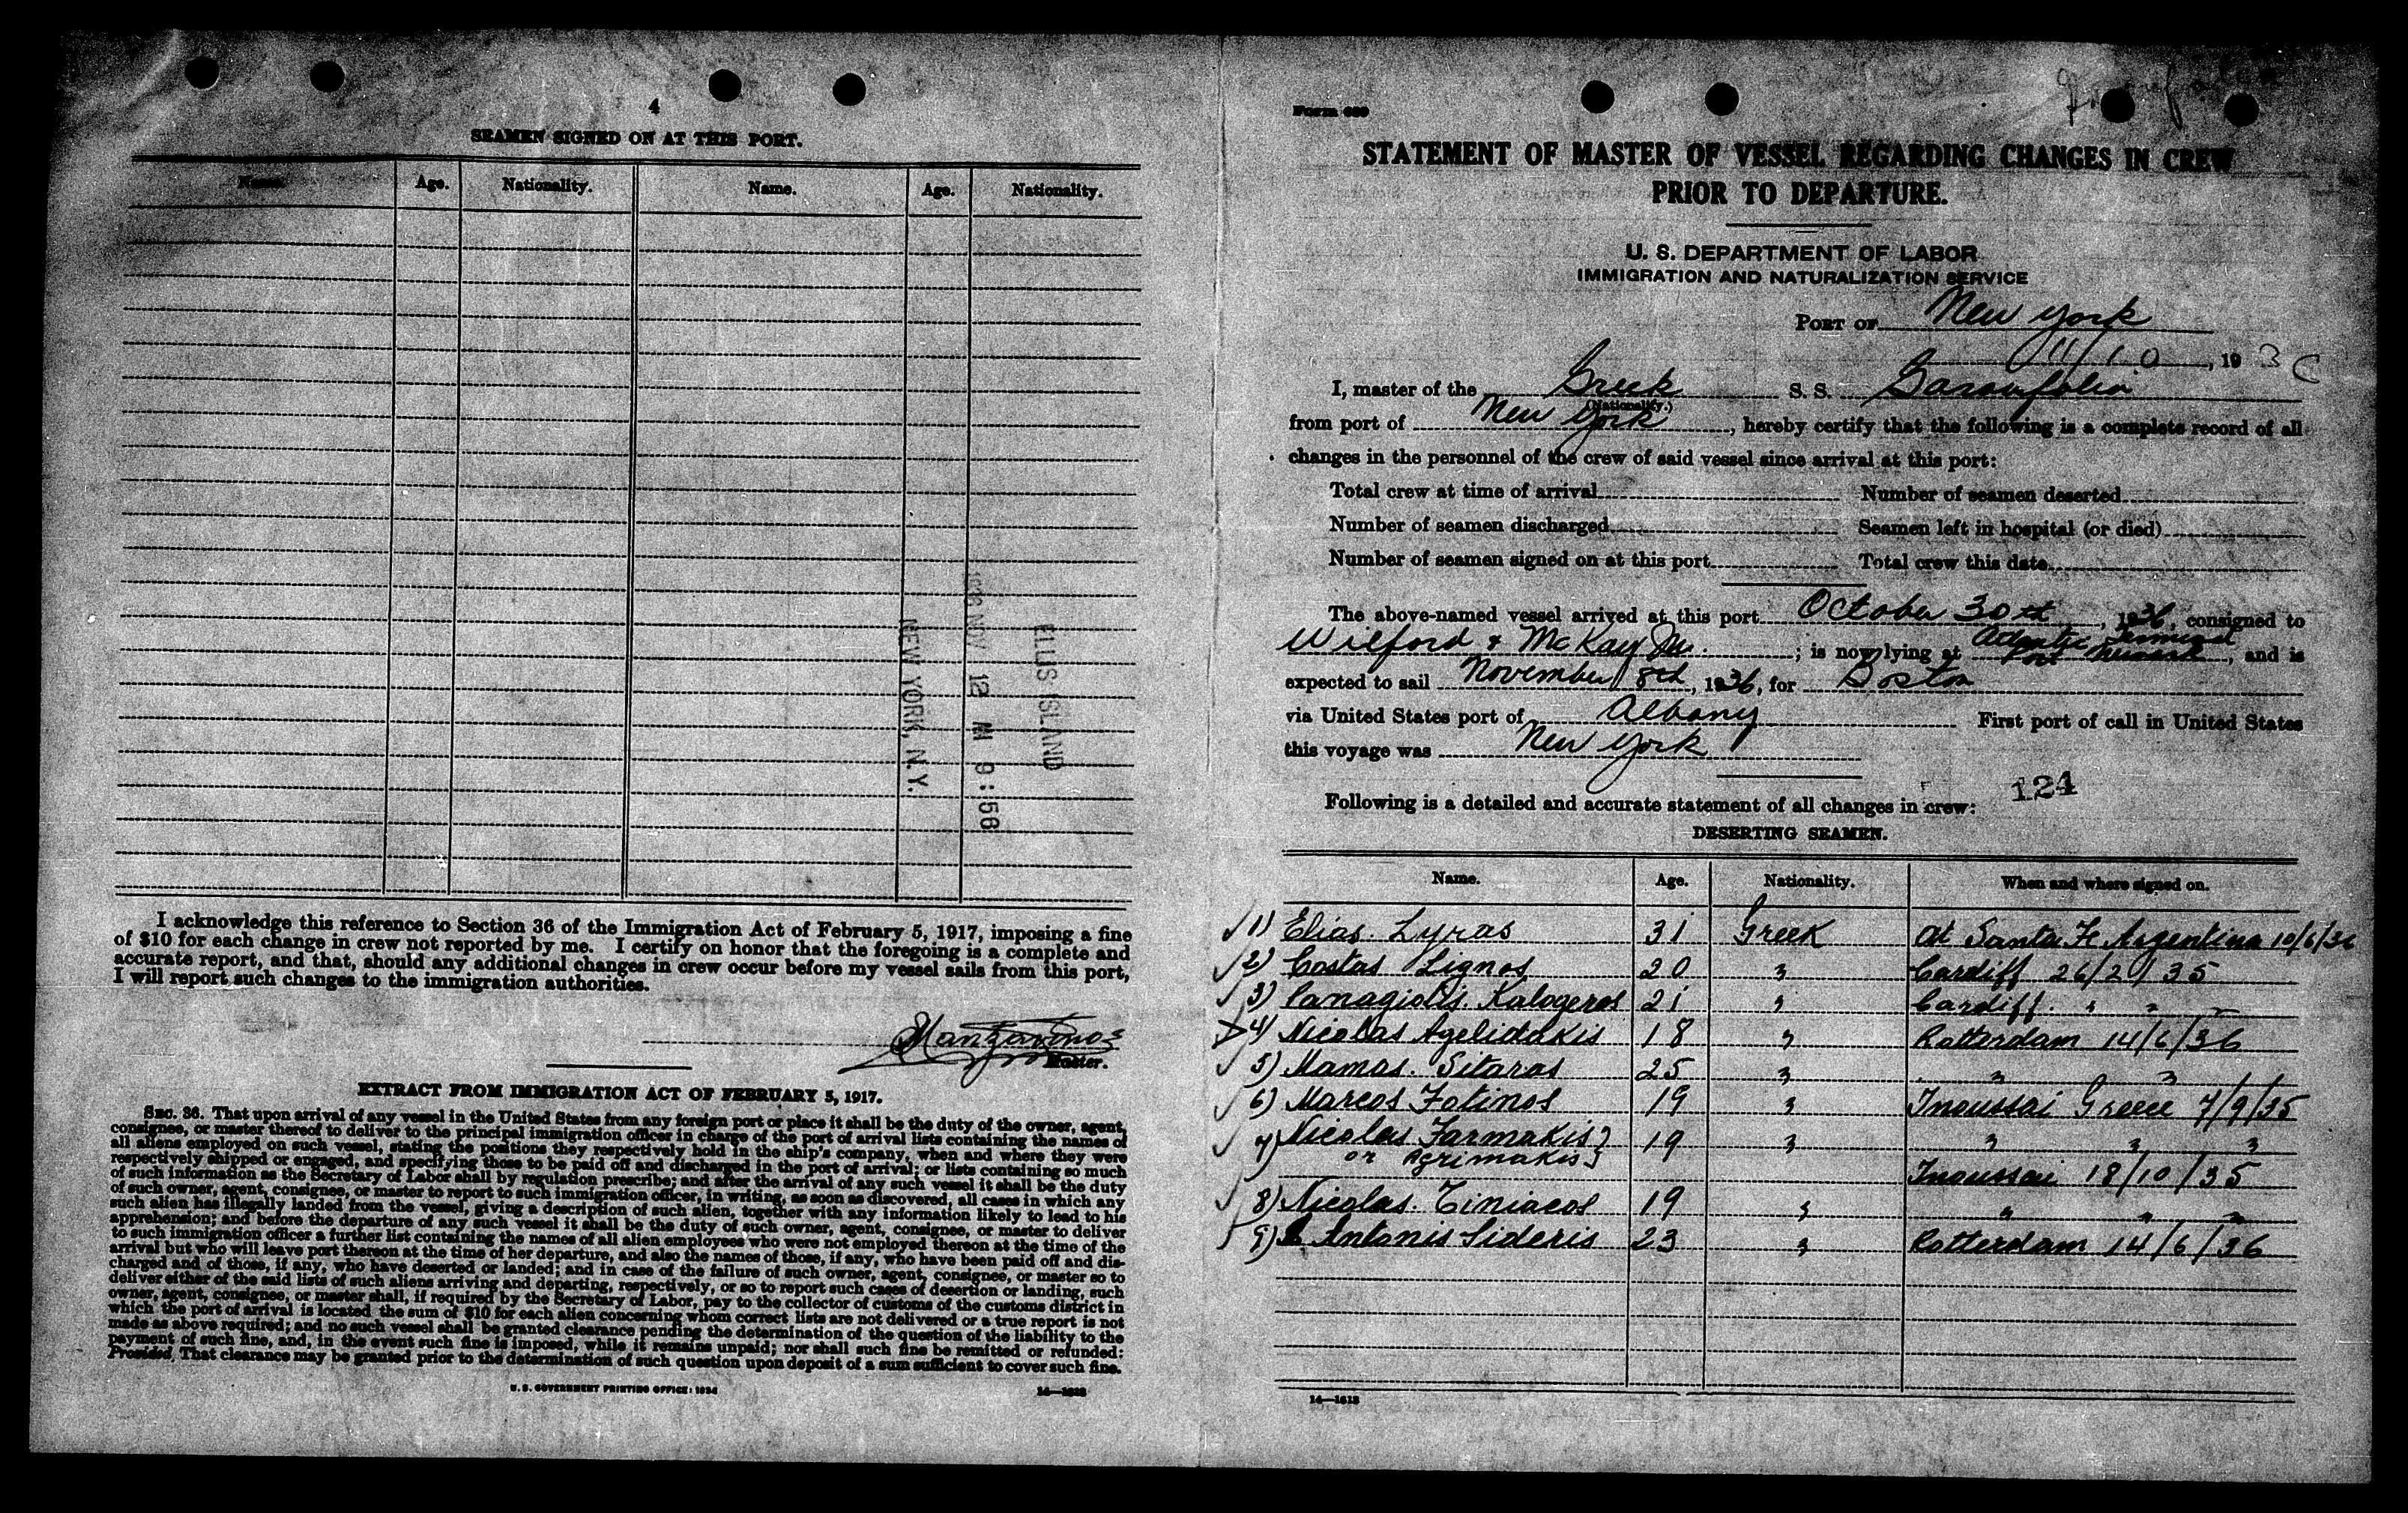 4
SEAMEN SIGNED ON AT THIS PORT.
Name. Age. Nationality. Name. Age. Nationality.
ELLIS ISLAND
NOV 12 M 9:56
NEW YORK, N.Y.
I acknowledge this reference to Section 36 of the Immigration Act of February 5, 1917, imposing a fine
of $10 for each change in crew not reported by me. I certify on honor that the foregoing is a complete and
accurate report, and that, should any additional changes in crew occur before my vessel sails from this port,
I will report such changes to the immigration authorities.
Master.
EXTRACT FROM IMMIGRATION ACT OF FEBRUARY 5, 1917.
SEC. 36. That upon arrival of any vessel in the United States from any foreign port or place it shall be the duty of the owner, agent,
consignee, or master thereof to deliver to the principal immigration officer in charge of the port of arrival lists containing the names of
all aliens employed on such vessel, stating the positions they respectively hold in the ship's company, when and where they were
respectively shipped or engaged, and specifying those to be paid off and discharged in the port of arrival; or lists containing so much
of such information as the Secretary of Labor shall by regulation prescribe; and after the arrival of any such vessel it shall be the duty
of such owner, agent, consignee, or master to report to such immigration officer, in writing, as soon as discovered, all cases in which any
such alien has illegally landed from the vessel, giving a description of such alien, together with any information likely to lead to his
apprehension; and before the departure of any such vessel it shall be the duty of such owner, agent, consignee, or master to deliver
to such immigration officer a further list containing the names of all alien employees who were not employed thereon at the time of the
arrival but who will leave port thereon at the time of her departure, and also the names of those, if any, who have been paid off and dis-
charged and of those, if any, who have deserted or landed; and in case of the failure of such owner, agent, consignee, or master so to
deliver either of the said lists of such aliens arriving and departing, respectively, or so to report such cases of desertion or landing, such
owner, agent, consignee, or master shall, if required by the Secretary of Labor, pay to the collector of customs of the customs district in
which the port of arrival is located the sum of $10 for each alien concerning whom correct lists are not delivered or a true report is not
made as above required; and no such vessel shall be granted clearance pending the determination of the question of the liability to the
payment of such fine, and, in the event such fine is imposed, while it remains unpaid; nor shall such fine be remitted or refunded:
Provided, That clearance may be granted prior to the determination of such question upon deposit of a sum sufficient to cover such fine.
U. S. GOVERNMENT PRINTING OFFICE: 1934
Form 689
STATEMENT OF MASTER OF VESSEL REGARDING CHANGES IN CREW
PRIOR TO DEPARTURE.
U. S. DEPARTMENT OF LABOR
IMMIGRATION AND NATURALIZATION SERVICE
PORT OF New York
11/10, 193
I, master of the Greek S. S.
(Nationality.)
from port of New York, hereby certify that the following is a complete record of all
changes in the personnel of the crew of said vessel since arrival at this port:
Total crew at time of arrival Number of seamen deserted
Number of seamen discharged Seamen left in hospital (or died)
Number of seamen signed on at this port Total crew this date
The above-named vessel arrived at this port October 30th, 1936, consigned to
Wilford & McKay; is now lying at Atlantic Terminal, and is
expected to sail November 8th, 1936, for Boston
via United States port of Albany First port of call in United States
this voyage was New York
Following is a detailed and accurate statement of all changes in crew:
124
DESERTING SEAMEN.
Name. Age. Nationality. When and where signed on.
1) Elias Lyras 31 Greek At Santa Fe Argentina 10/6/36
2) Costas Lignos 20 " Cardiff 26/2/35
3) Panagiotis Kalogeros 21 " Cardiff. " " "
4) Nicolas Agelidakis 18 " Rotterdam 14/6/36
5) Mamas. Sitaras 25 " " "
6) Marcos Fotinos 19 " Inoussai Greece 7/9/35
7) Nicolas Farmakis} 19 " " " "
or Agrimakis} Inoussai 18/10/35
8) Nicolas. Tiniacos 19 " " " "
9) Antonis Sideris 23 " Rotterdam 14/6/36
14—1613